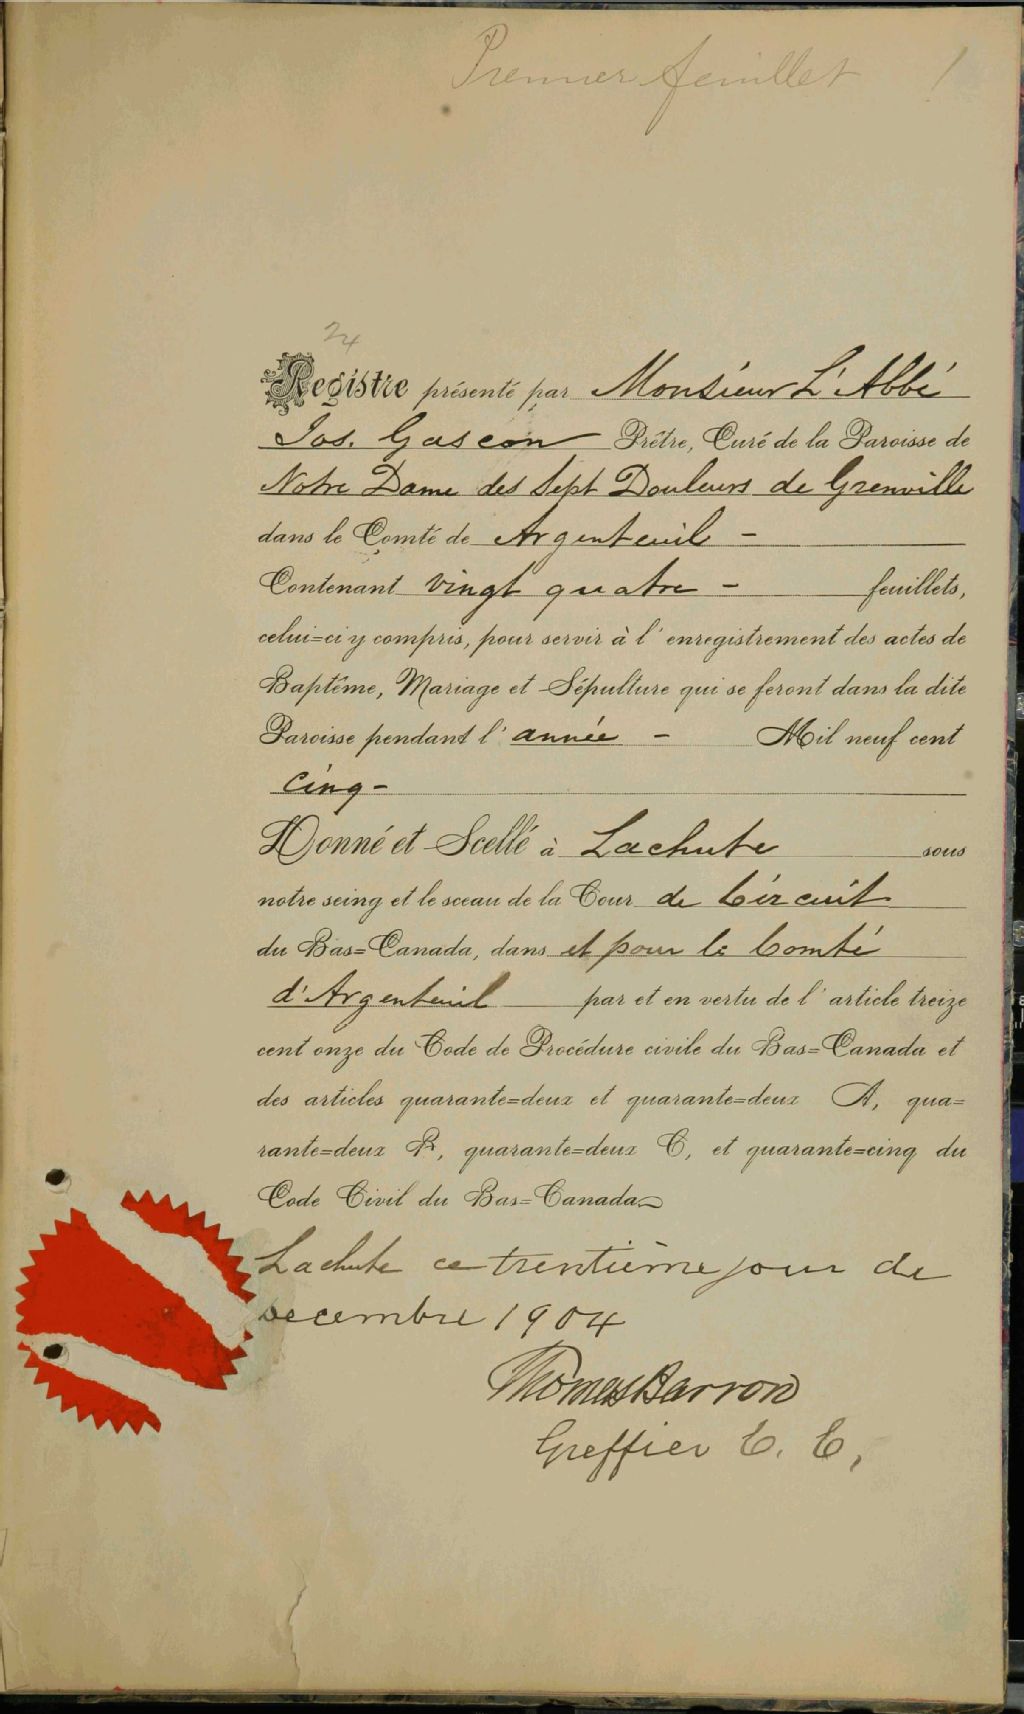 Premier feuillet 1
24
Registre présenté par Monsieur L'Abbé
Jos. Gascon Prêtre, Curé de la Paroisse de
Notre Dame des Sept Douleurs de Grenville
dans le Comté de Argenteuil -
Contenant vingt quatre - feuillets,
celui=ci y compris, pour servir à l'enregistrement des actes de
Baptême, Mariage et Sépulture qui se feront dans la dite
Paroisse pendant l'année - Mil neuf cent
cinq -
Donné et Scellé à Lachute sous
notre seing et le sceau de la Cour de Circuit
du Bas=Canada, dans et pour le Comté
d'Argenteuil par et en vertu de l'article treize
cent onze du Code de Procédure civile du Bas=Canada et
des articles quarante=deux et quarante=deux A, qua=
rante=deux B, quarante=deux C, et quarante=cinq du
Code Civil du Bas=Canada
Lachute ce trentième jour de
Decembre 1904
Thomas Barron
Greffier C. C,